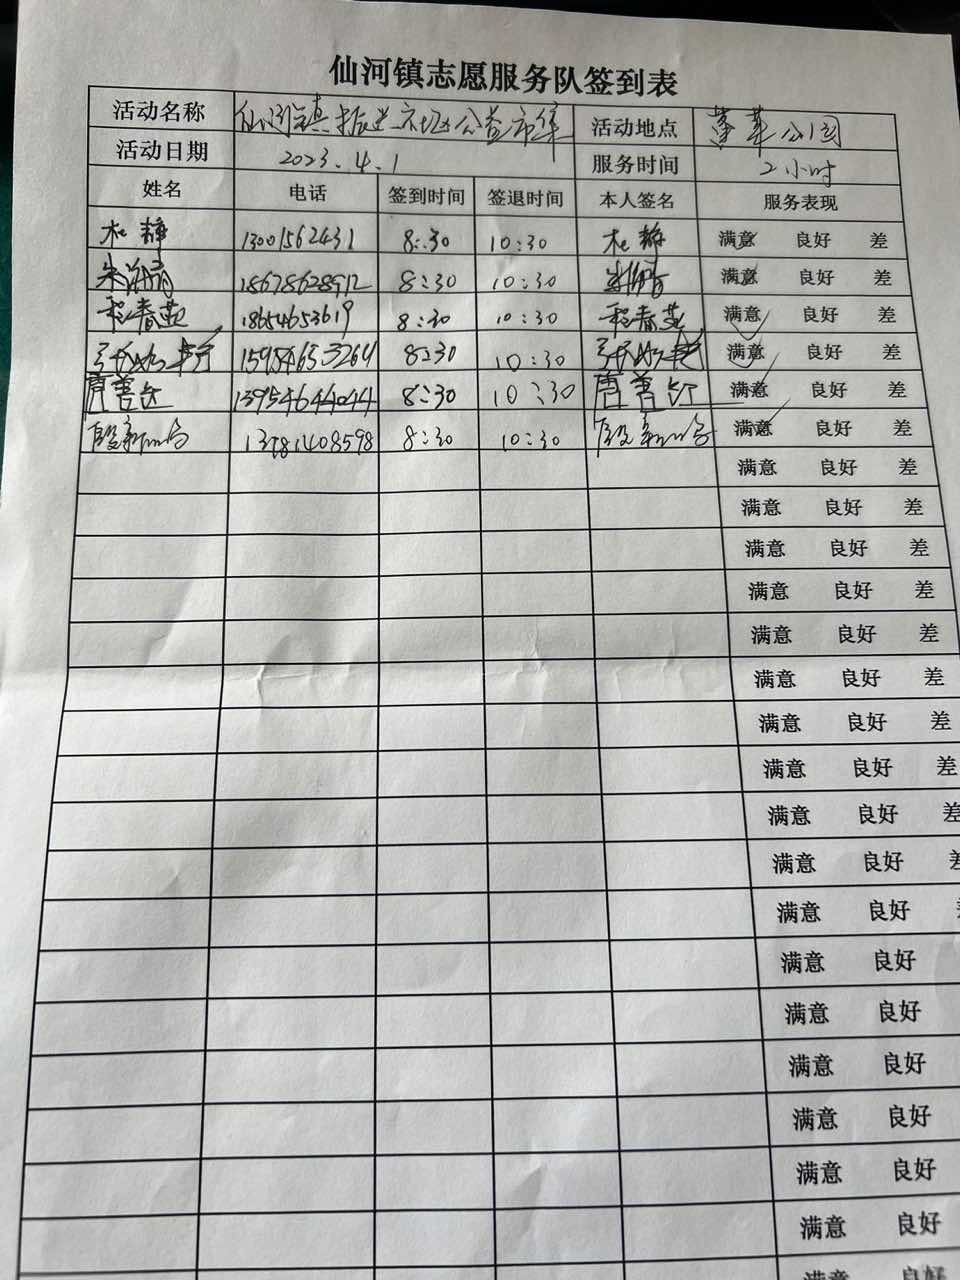 仙河镇志愿服务队签到表
活动名称 仙河镇振兴社区公益市集 活动地点 蓬莱公园
活动日期 2023.4.1 服务时间 2小时
姓名 电话 签到时间 签退时间 本人签名 服务表现
杜静 13001562431 8:30 10:30 杜静 满意 良好 差
朱海青 18678628912 8:30 10:30 朱海青 满意 良好 差
程春英 18654653619 8:30 10:30 程春英 满意 良好 差
15954653264 8:30 10:30 满意 良好 差
唐善 13954644044 8:30 10:30 唐善 满意 良好 差
段新 13181408598 8:30 10:30 段新 满意 良好 差
满意 良好 差
满意 良好 差
满意 良好 差
满意 良好 差
满意 良好 差
满意 良好 差
满意 良好 差
满意 良好 差
满意 良好 差
满意 良好
满意 良好
满意 良好
满意 良好
满意 良好
满意 良好
满意 良好
满意 良好
满意 良好